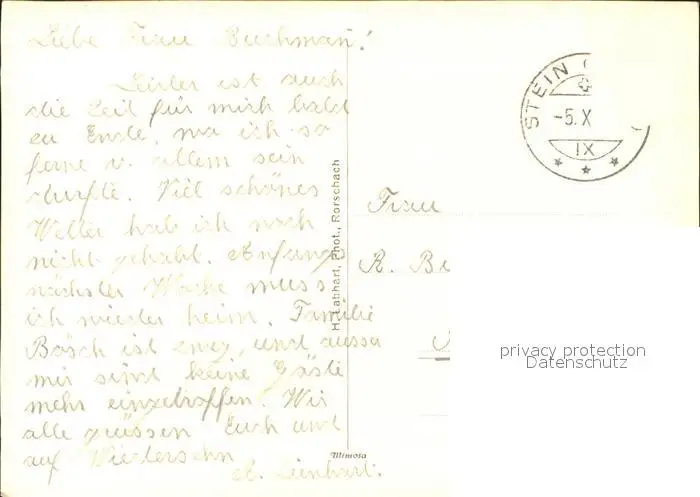 Liebe Frau Buchman!
Leider ist auch
die Zeit für mich bald
zu Ende, wo ich so
ferne v. allem sein
durfte. Viel schönes
Wetter hab ich noch
nicht gehabt. Anfangs
nächster Woche muss
ich wieder heim. Familie
Bösch ist eweg, und ausser
mir sind keine Gäste
mehr eingetroffen. Wir
alle grüssen Euch und
auf Wiedersehn
A. Lienhart.
H. Labhart, Phot., Rorschach
Mimosa
STEIN
-5.X
IX
Frau
R. Be
privacy protection
Datenschutz